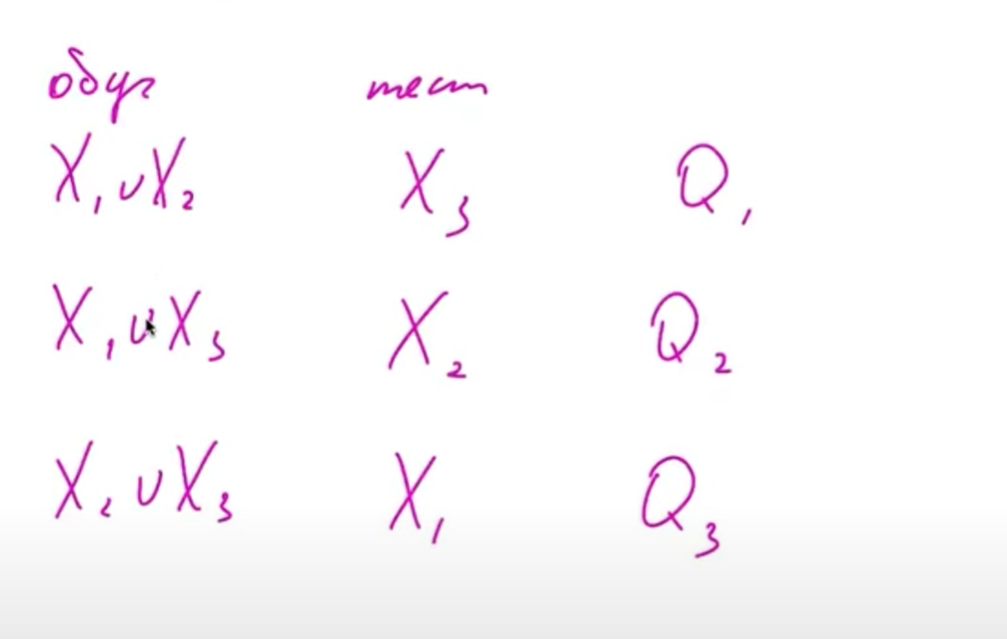 обуч тест
X₁ ∪ X₂ X₃ Q₁
X₁ ∪ X₃ X₂ Q₂
X₂ ∪ X₃ X₁ Q₃